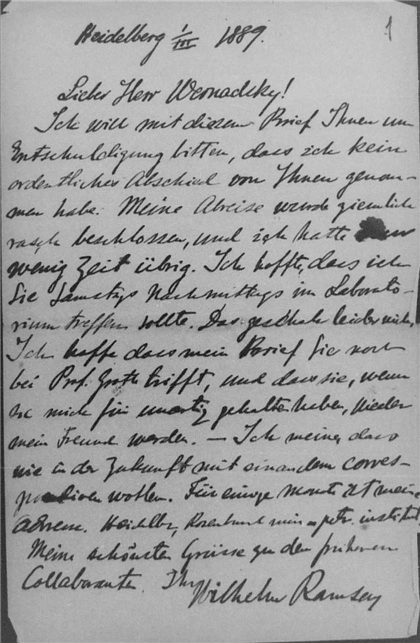 1
Heidelberg 1/III 1889.
Lieber Herr Wernadsky!
Ich will mit diesem Brief Ihnen um
Entschuldigung bitten, dass ich kein
ordentliches Abschied von Ihnen genom-
men habe. Meine Abreise wurde ziemlich
rasch beschlossen, und ich hatte
wenig Zeit übrig. Ich hoffte, dass ich
Sie Samstags Nachmittags im Laborato-
rium treffen sollte. Das geschah leider nicht,
Ich hoffe dass mein Brief Sie noch
bei Prof. Groth trifft, und dass sie, wenn
sie mich für unartig gehalten haben, wieder
mein Freund werden. — Ich meine, dass
wie in der Zukunft mit einandern corres-
pondiren wollen. Für einige Monate ist meine
Adresse. Heidelbg, Rosenbusch min = petr. institut
Meine schönsten Grüsse zu den früheren
Collaboranten. Ihr
Wilhelm Ramsay